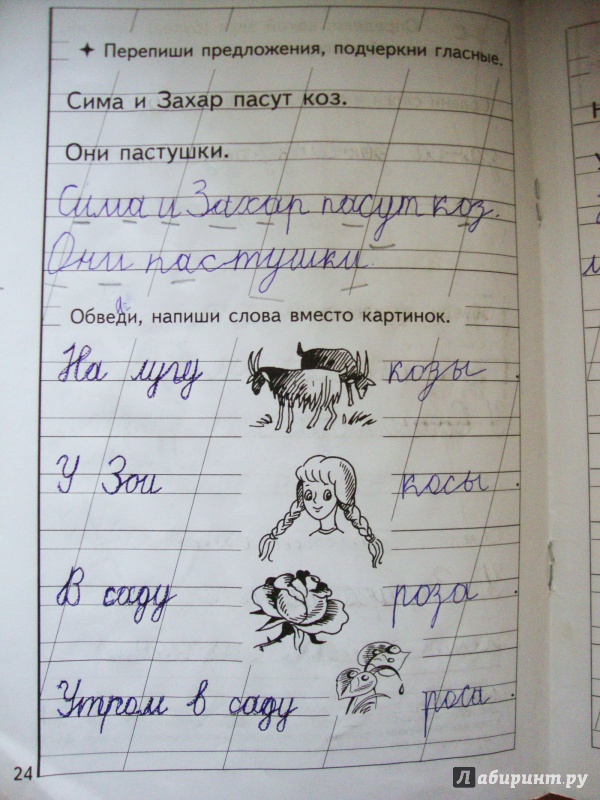 Перепиши предложения, подчеркни гласные.
Сима и Захар пасут коз.
Они пастушки.
Сима и Захар пасут коз.
Они пастушки
Обведи, напиши слова вместо картинок.
На лугу козы.
У Зои косы.
В саду роза.
Утром в саду роса.
24
Лабиринт.ру